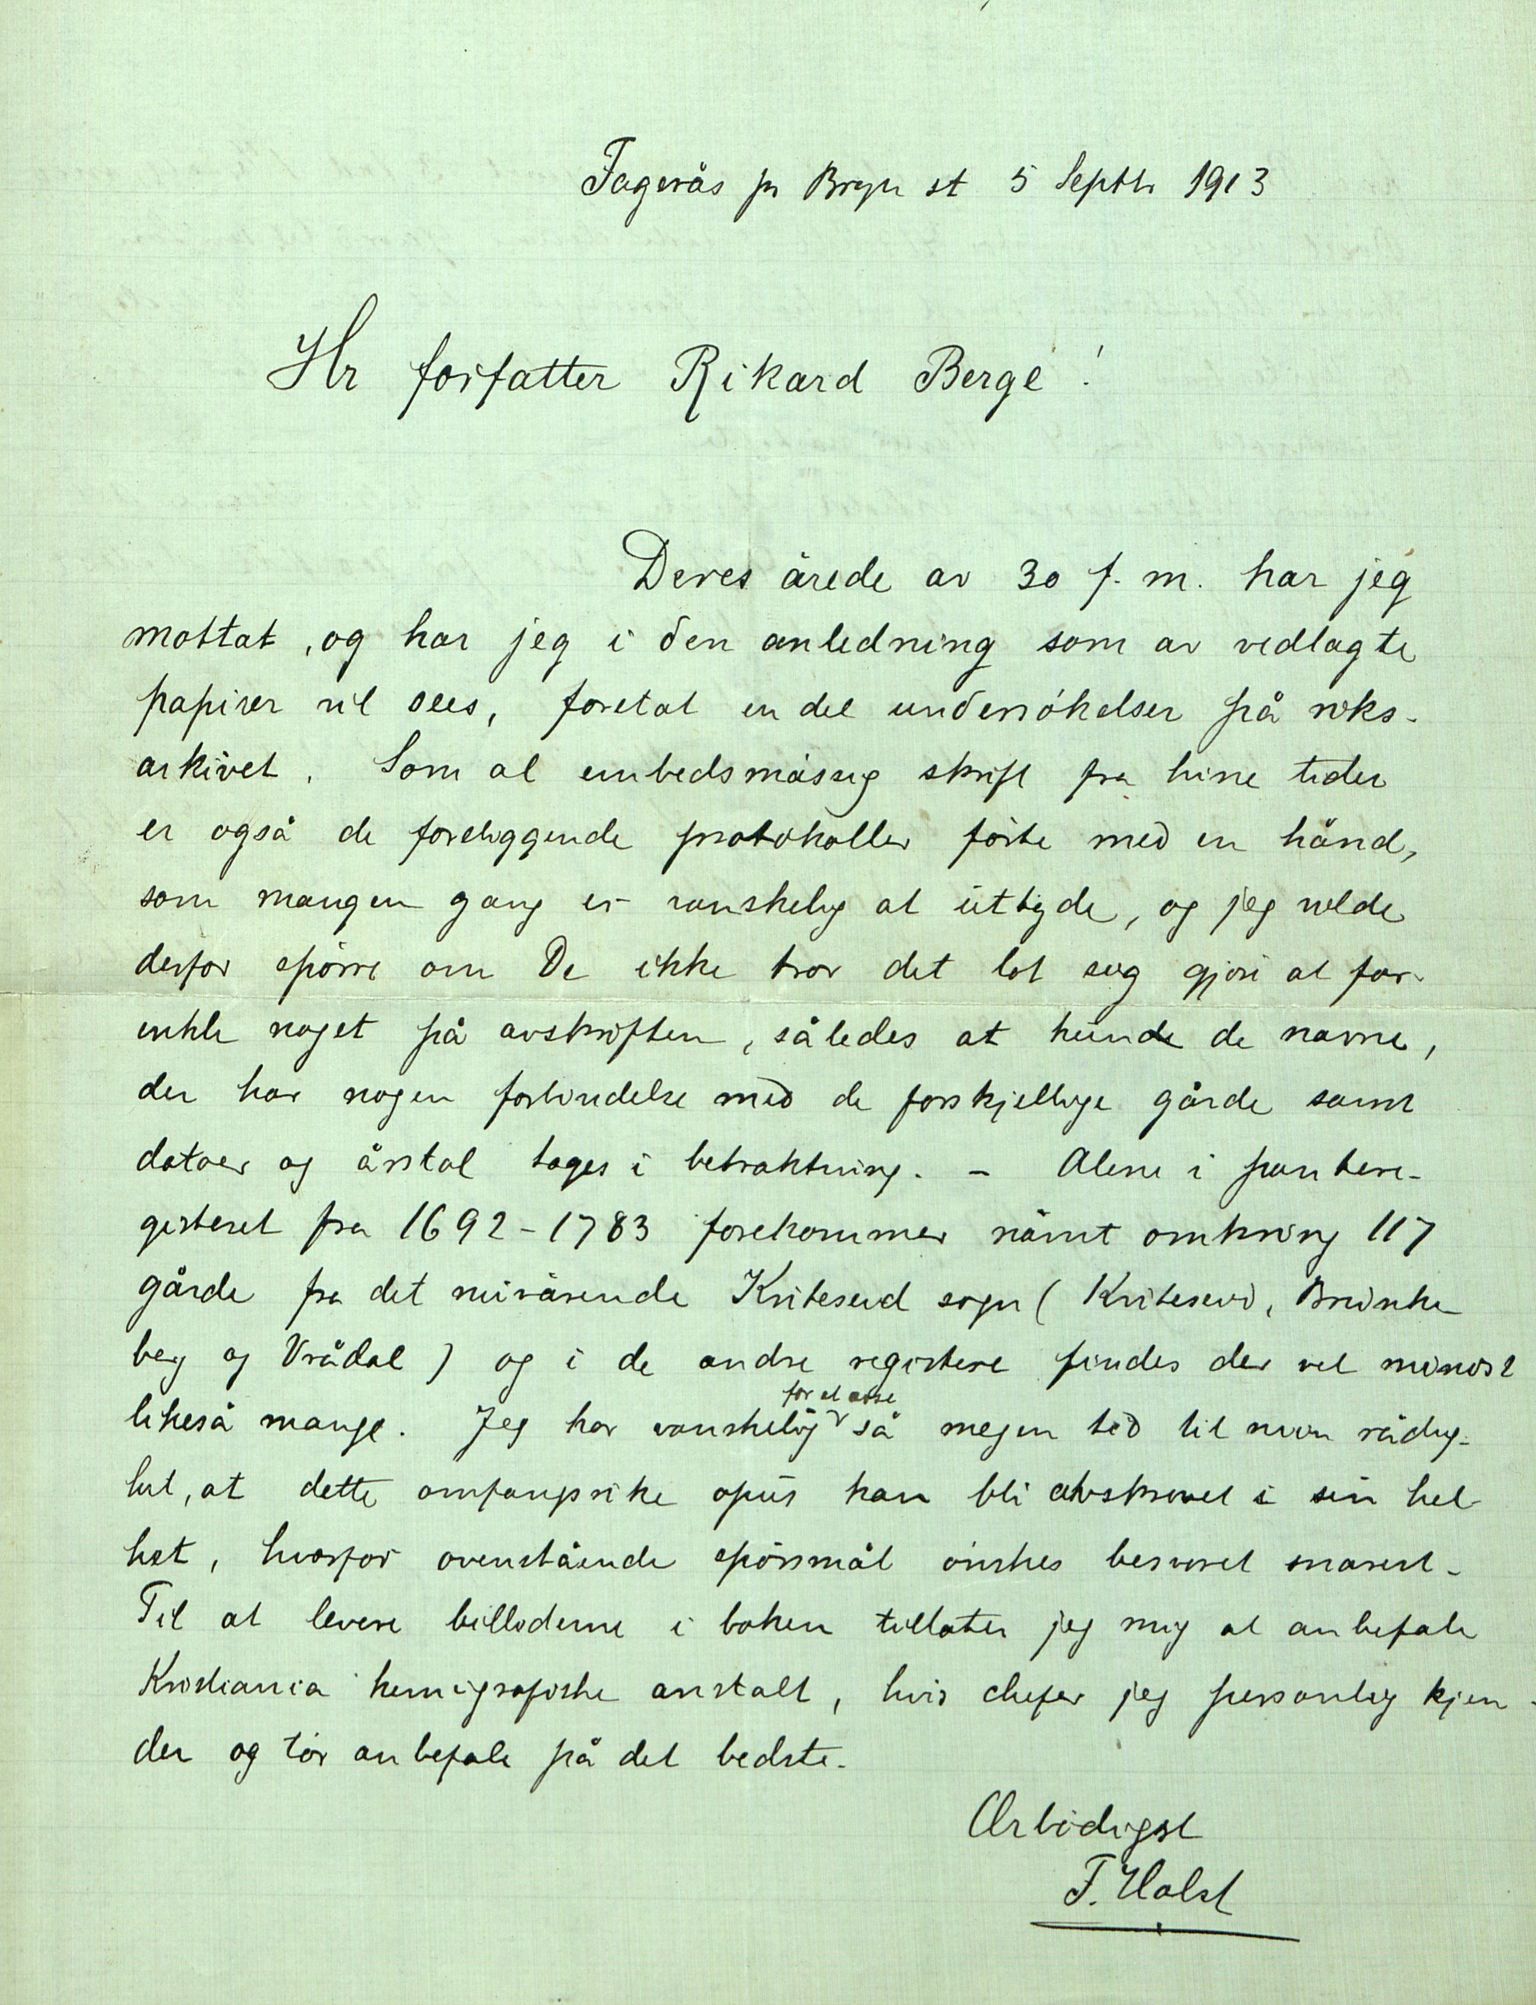 Fagerås pr Bryn st 5 Septbr 1913
Hr forfatter Rikard Berge!
Deres ärede av 30 f. m. har jeg
mottat, og har jeg i den anledning som av vedlagte
papirer vil sees, foretat en del undersökelser på riks-
arkivet. Som al embedsmässig skrift fra hine tider
er også de foreliggende protokoller förte med en hånd,
som mangen gang er vanskelig at uttyde, og jeg vilde
derfor spörre om De ikke tror det lot seg gjöre at for-
enkle noget på avskriften, således at kunde de navne,
der har nogen forbindelse med de forskjellige gårde samt
datoer og årstal tages i betraktning. - Alene i pantere-
gisteret fra 1692-1783 forekommer nämt omkring 117
gårde fra det nuvärende Kviteseid sogn (Kviteseid, Brunke
berg og Vrådal) og i de andre registere findes der vel minst
likeså mange. Jeg har vanskelig for at avse så megen tid til min rådig-
het, at dette omfangsrike opus kan bli avskrevet i sin hel-
het, hvorfor ovenstående spörsmål önskes besvaret snarest.
Til at levere billederne i boken tillater jeg mig at anbefale
Kristiania kemigrafiske anstalt, hvis chefer jeg personlig kjen-
der og tör anbefale på det bedste.
Ærbödigst
F. Holst